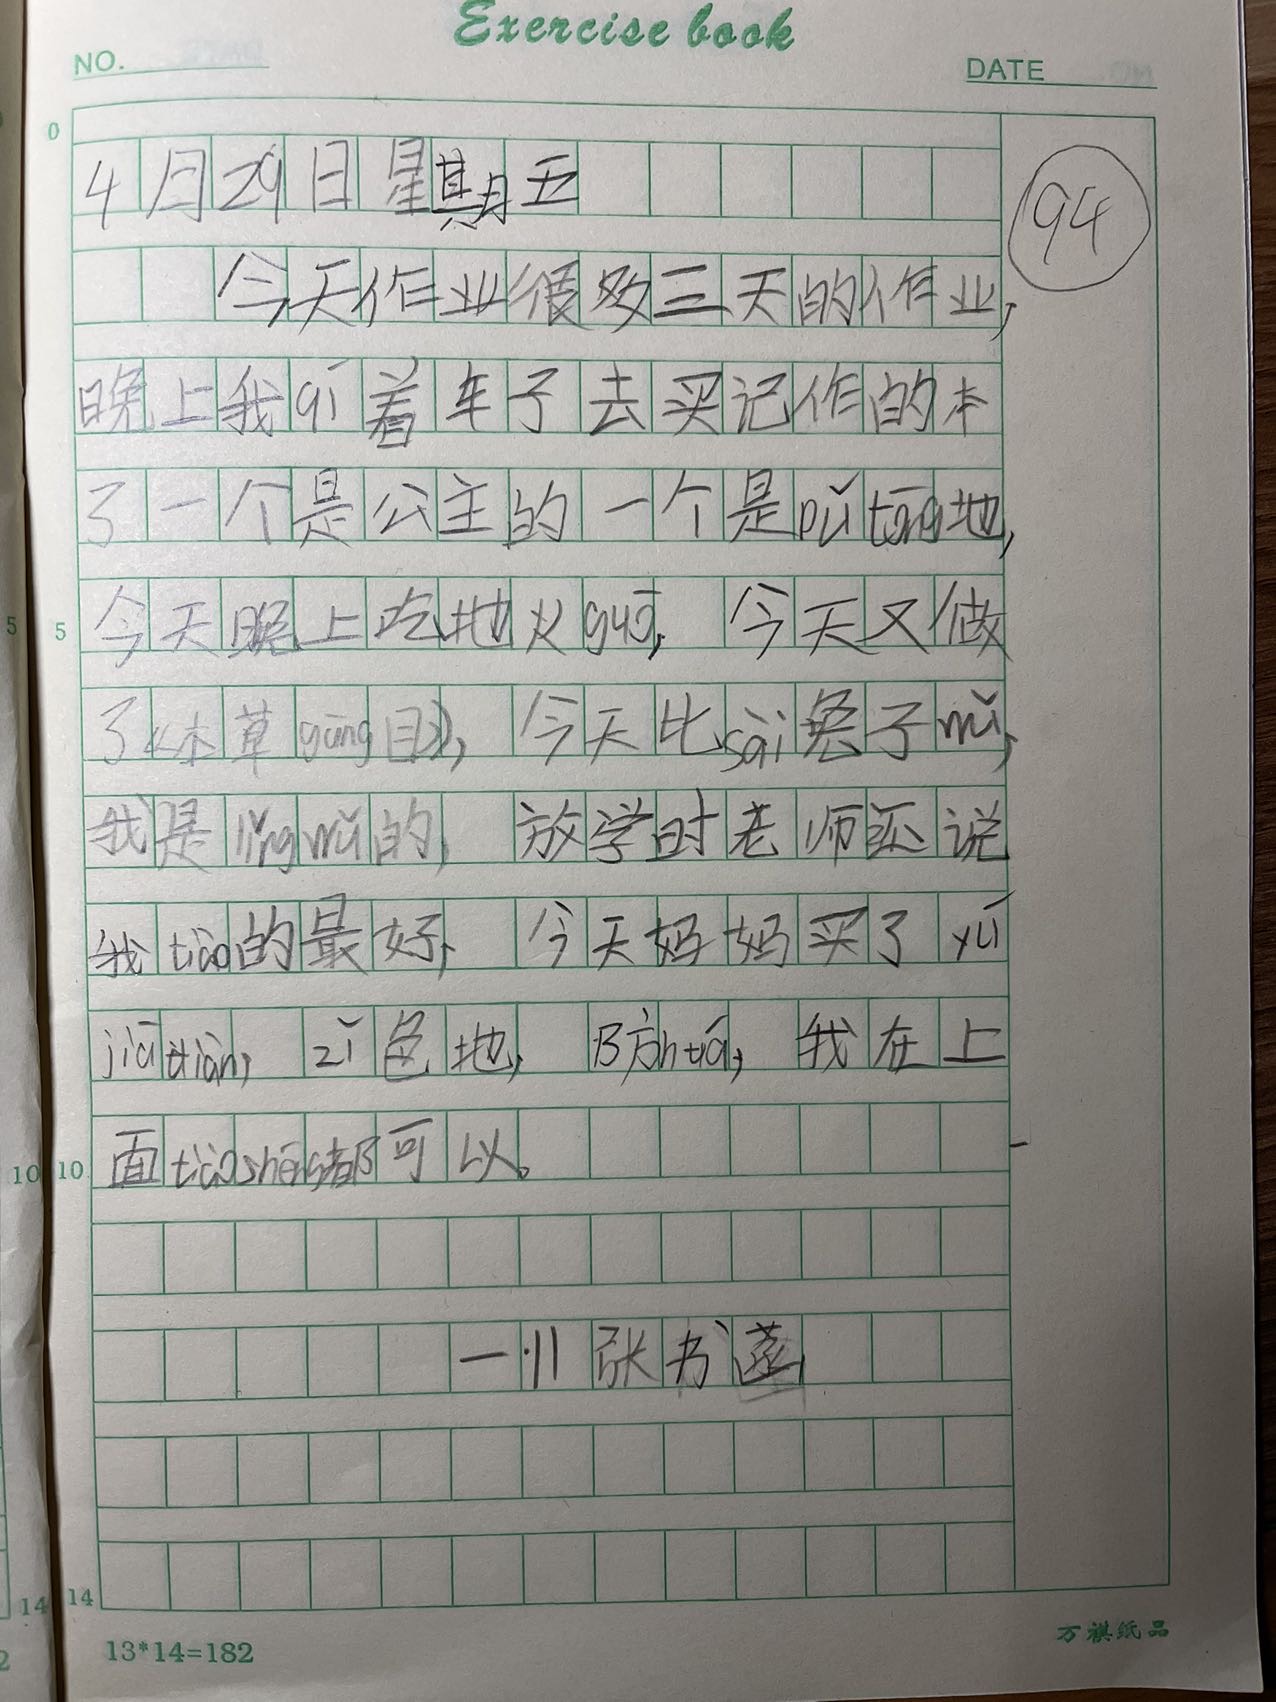 Exercise book
NO.
DATE
0
4月29日星期五
94
今天作业很多三天的作业,
晚上我qī着车子去买记作的本
了一个是公主的一个是pǔ tōng地,
5 5
今天晚上吃地火guō, 今天又做
了《本草gāng目》, 今天比sài兔子wǔ,
我是lǐng wǔ的, 放学时老师还说
我tiào的最好, 今天妈妈买了yú
jiā diàn, zǐ色地, B方huá, 我在上
10 10
面tiào shéng都可以。
一.11 张书
14 14
13*14=182
万祺纸品